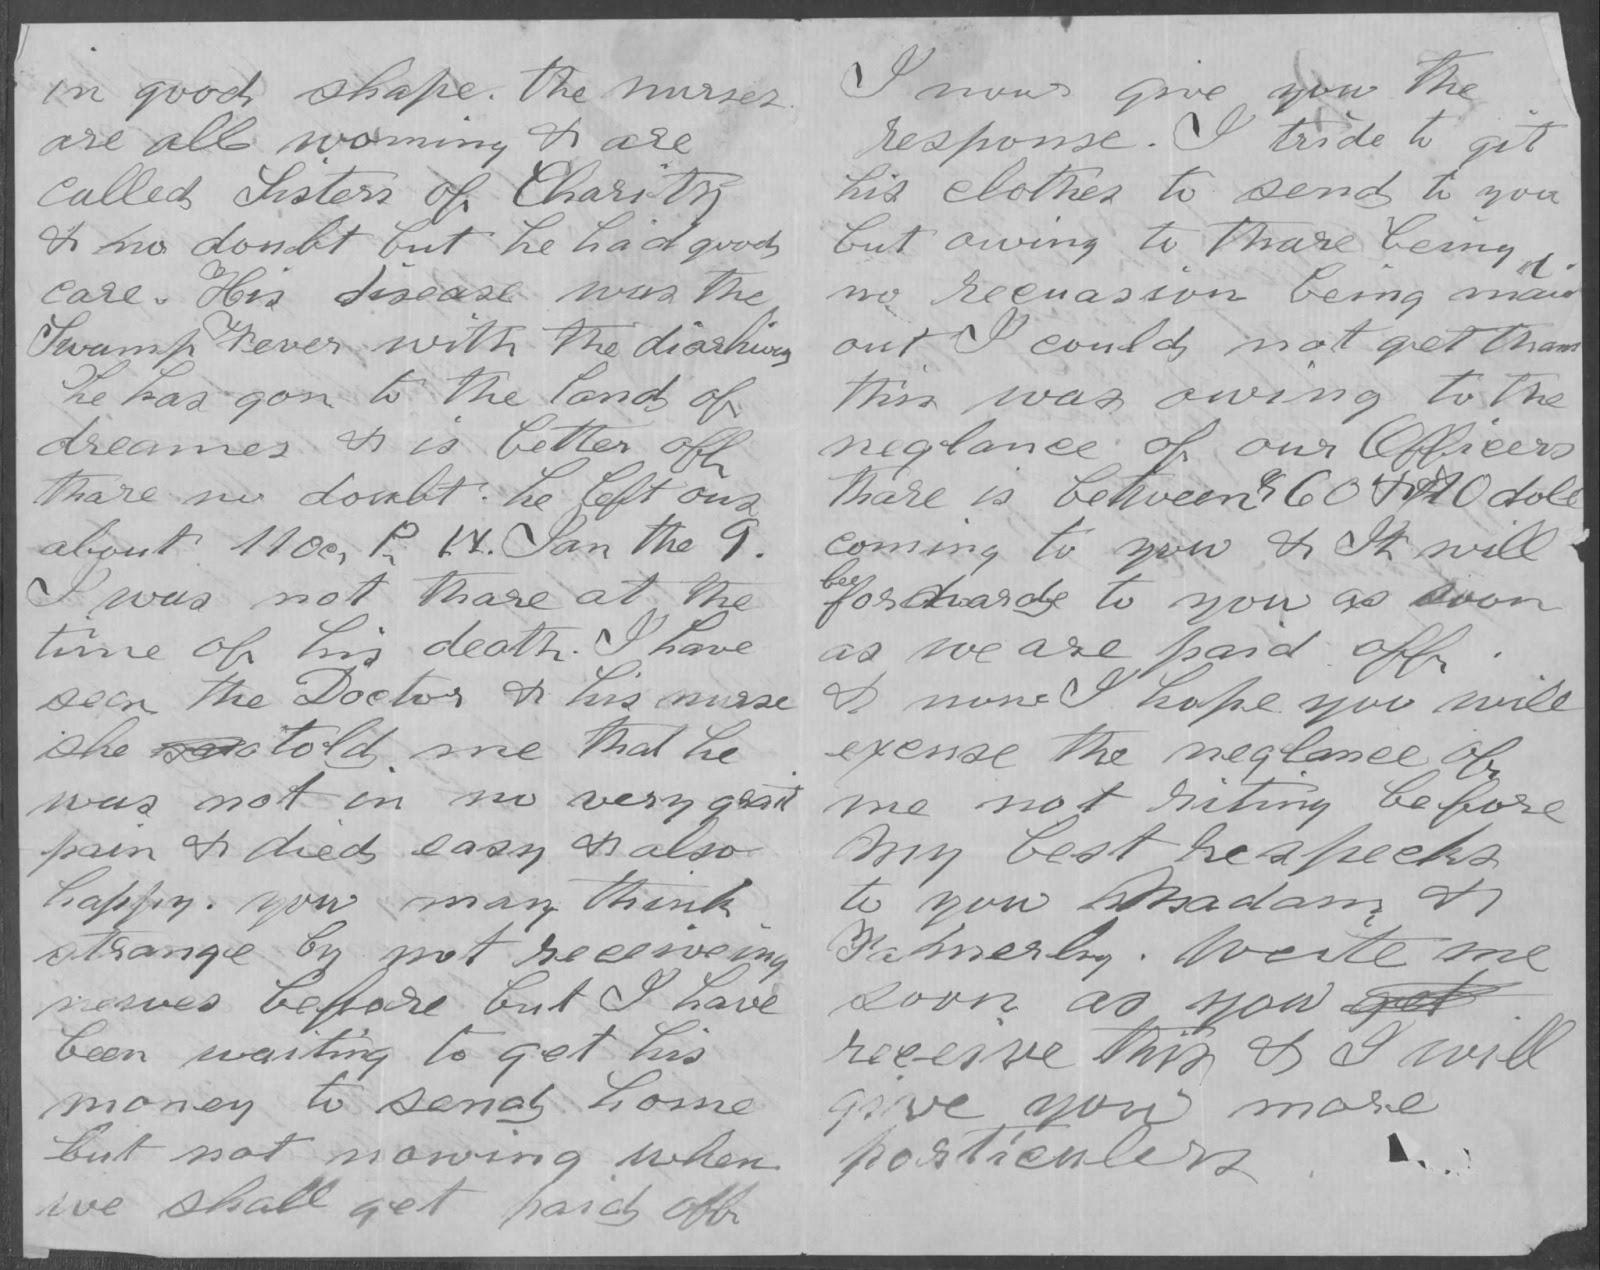 in good shape. the nurses
are all woming & are
called Sisters of Charity
& no doubt but he had good
care. His disease was the
Swamp Fever with the diarhiuy
he has gon to the land of
dreames & is better off
thare no doubt. he left ous
about 11 oc, P. M. Jan the 9.
I was not thare at the
time of his death. I have
seen the Doctor & his nurse
she told me that he
was not in no very grait
pain & died easy & also
happy. you may think
strange by not receiveing
newes before but I have
been waiting to get his
money to send home
but not nowing when
we shall get paid off
I now give you the
response. I tride to git
his clothes to send to you
but owing to thare being
no recuasion being maid
out I could not get tham
this was owing to the
neglance of our Officers
thare is between $60 & $70 doll
coming to you & It will
be forwarde to you as soon
as we are paid off.
& now I hope you will
excuse the neglance of
me not riting before
My best respecks
to you Madam &
Famerly. Write me
soon as you get
receive this & I will
give you more
particulers